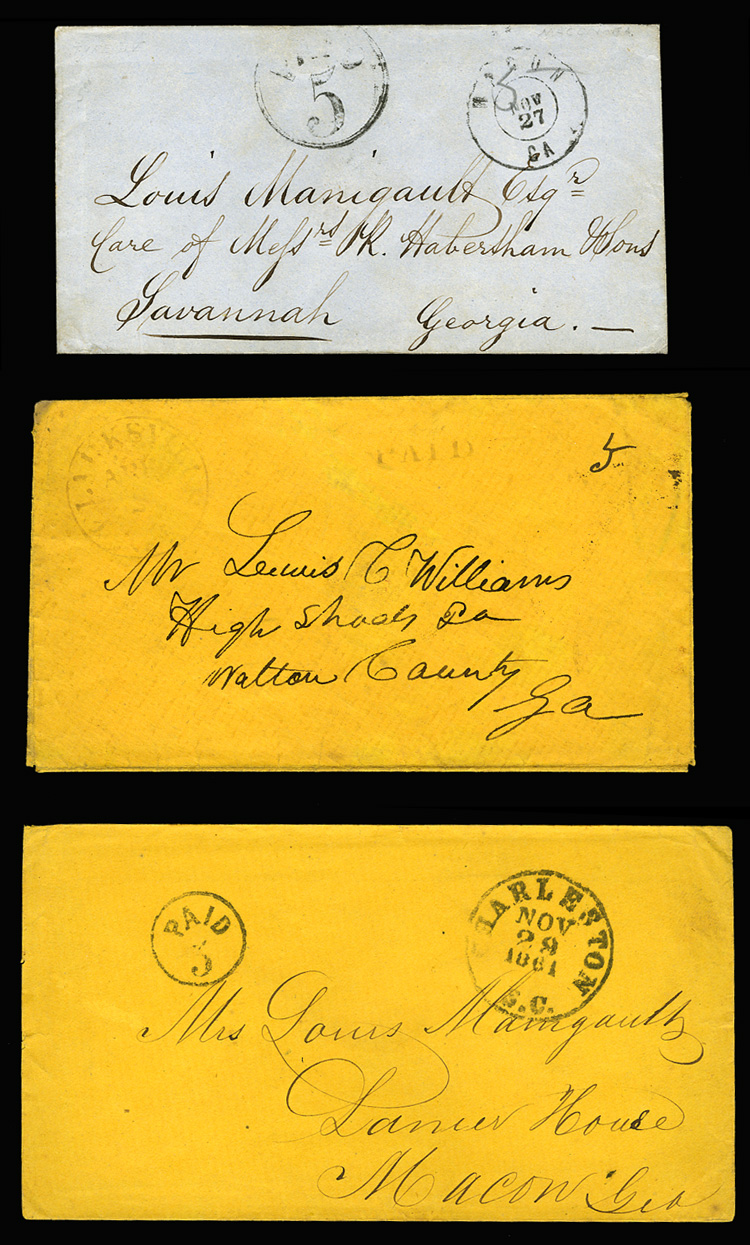 PAID
5
MACON
NOV
27
GA
5
Louis Manigault Esqr
Care of Messrs R. Habersham & Sons
Savannah Georgia. —
APR
PAID
5
Mr Lewis C Williams
High Shoals Po
Walton County
Ga
PAID
5
CHARLESTON
NOV
29
1861
S.C.
Mrs Louis Manigault
Lanier House
Macon Geo